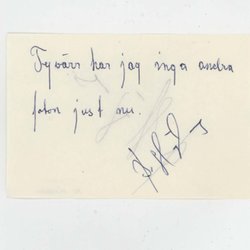 Tyvärr har jag inga andra
foton just nu.